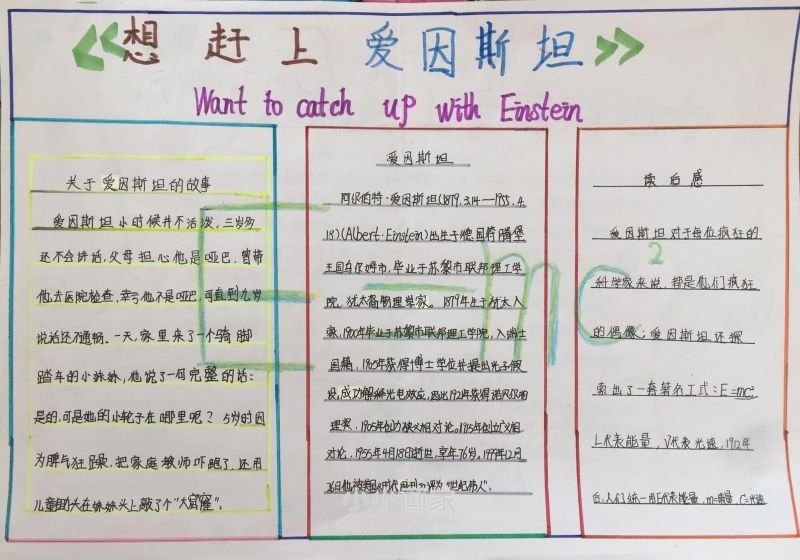 想赶上爱因斯坦
Want to catch up with Einstein
关于爱因斯坦的故事
爱因斯坦小时候并不活泼，三岁多
还不会讲话，父母担心他是哑巴，曾带
他去医院检查，幸亏他不是哑巴，可直到九岁
说话还不通畅。一天，家里来了一个骑脚
踏车的小妹妹，他说了一句完整的话：
是的，可是她的小轮子在哪里呢？5岁时因
为脾气狂躁，把家庭教师吓跑了，还用
儿童锄头在妹妹头上敲了个“大窟窿”。
爱因斯坦
阿尔伯特·爱因斯坦(1879.3.14—1955.4.
18)(Albert·Einstein)出生于德国符腾堡
王国乌尔姆市，毕业于苏黎市联邦理工学
院，犹太裔物理学家。1879年生于犹太人
家，1900年毕业于苏黎市联邦理工学院，入瑞士
国籍，1905年获得博士学位并提出光子假
设，成功解释光电效应，因此192年获得诺贝尔物
理奖，1905年创力狭义相对论。1915年创力义相
对论，1955年4月18日逝世，享年76岁。1999年12月
26日他被美时代周刊评为“世纪伟人”。
读后感
爱因斯坦对于每位疯狂的
科学家来说，都是他们疯狂
的偶像；爱因斯坦还探
索出了一套著名工式：E=mc²
L代表能量，V代表光速，1912年
后，人们统一用E代表能量，m=质量，C=光速
E=mc²
小小画家